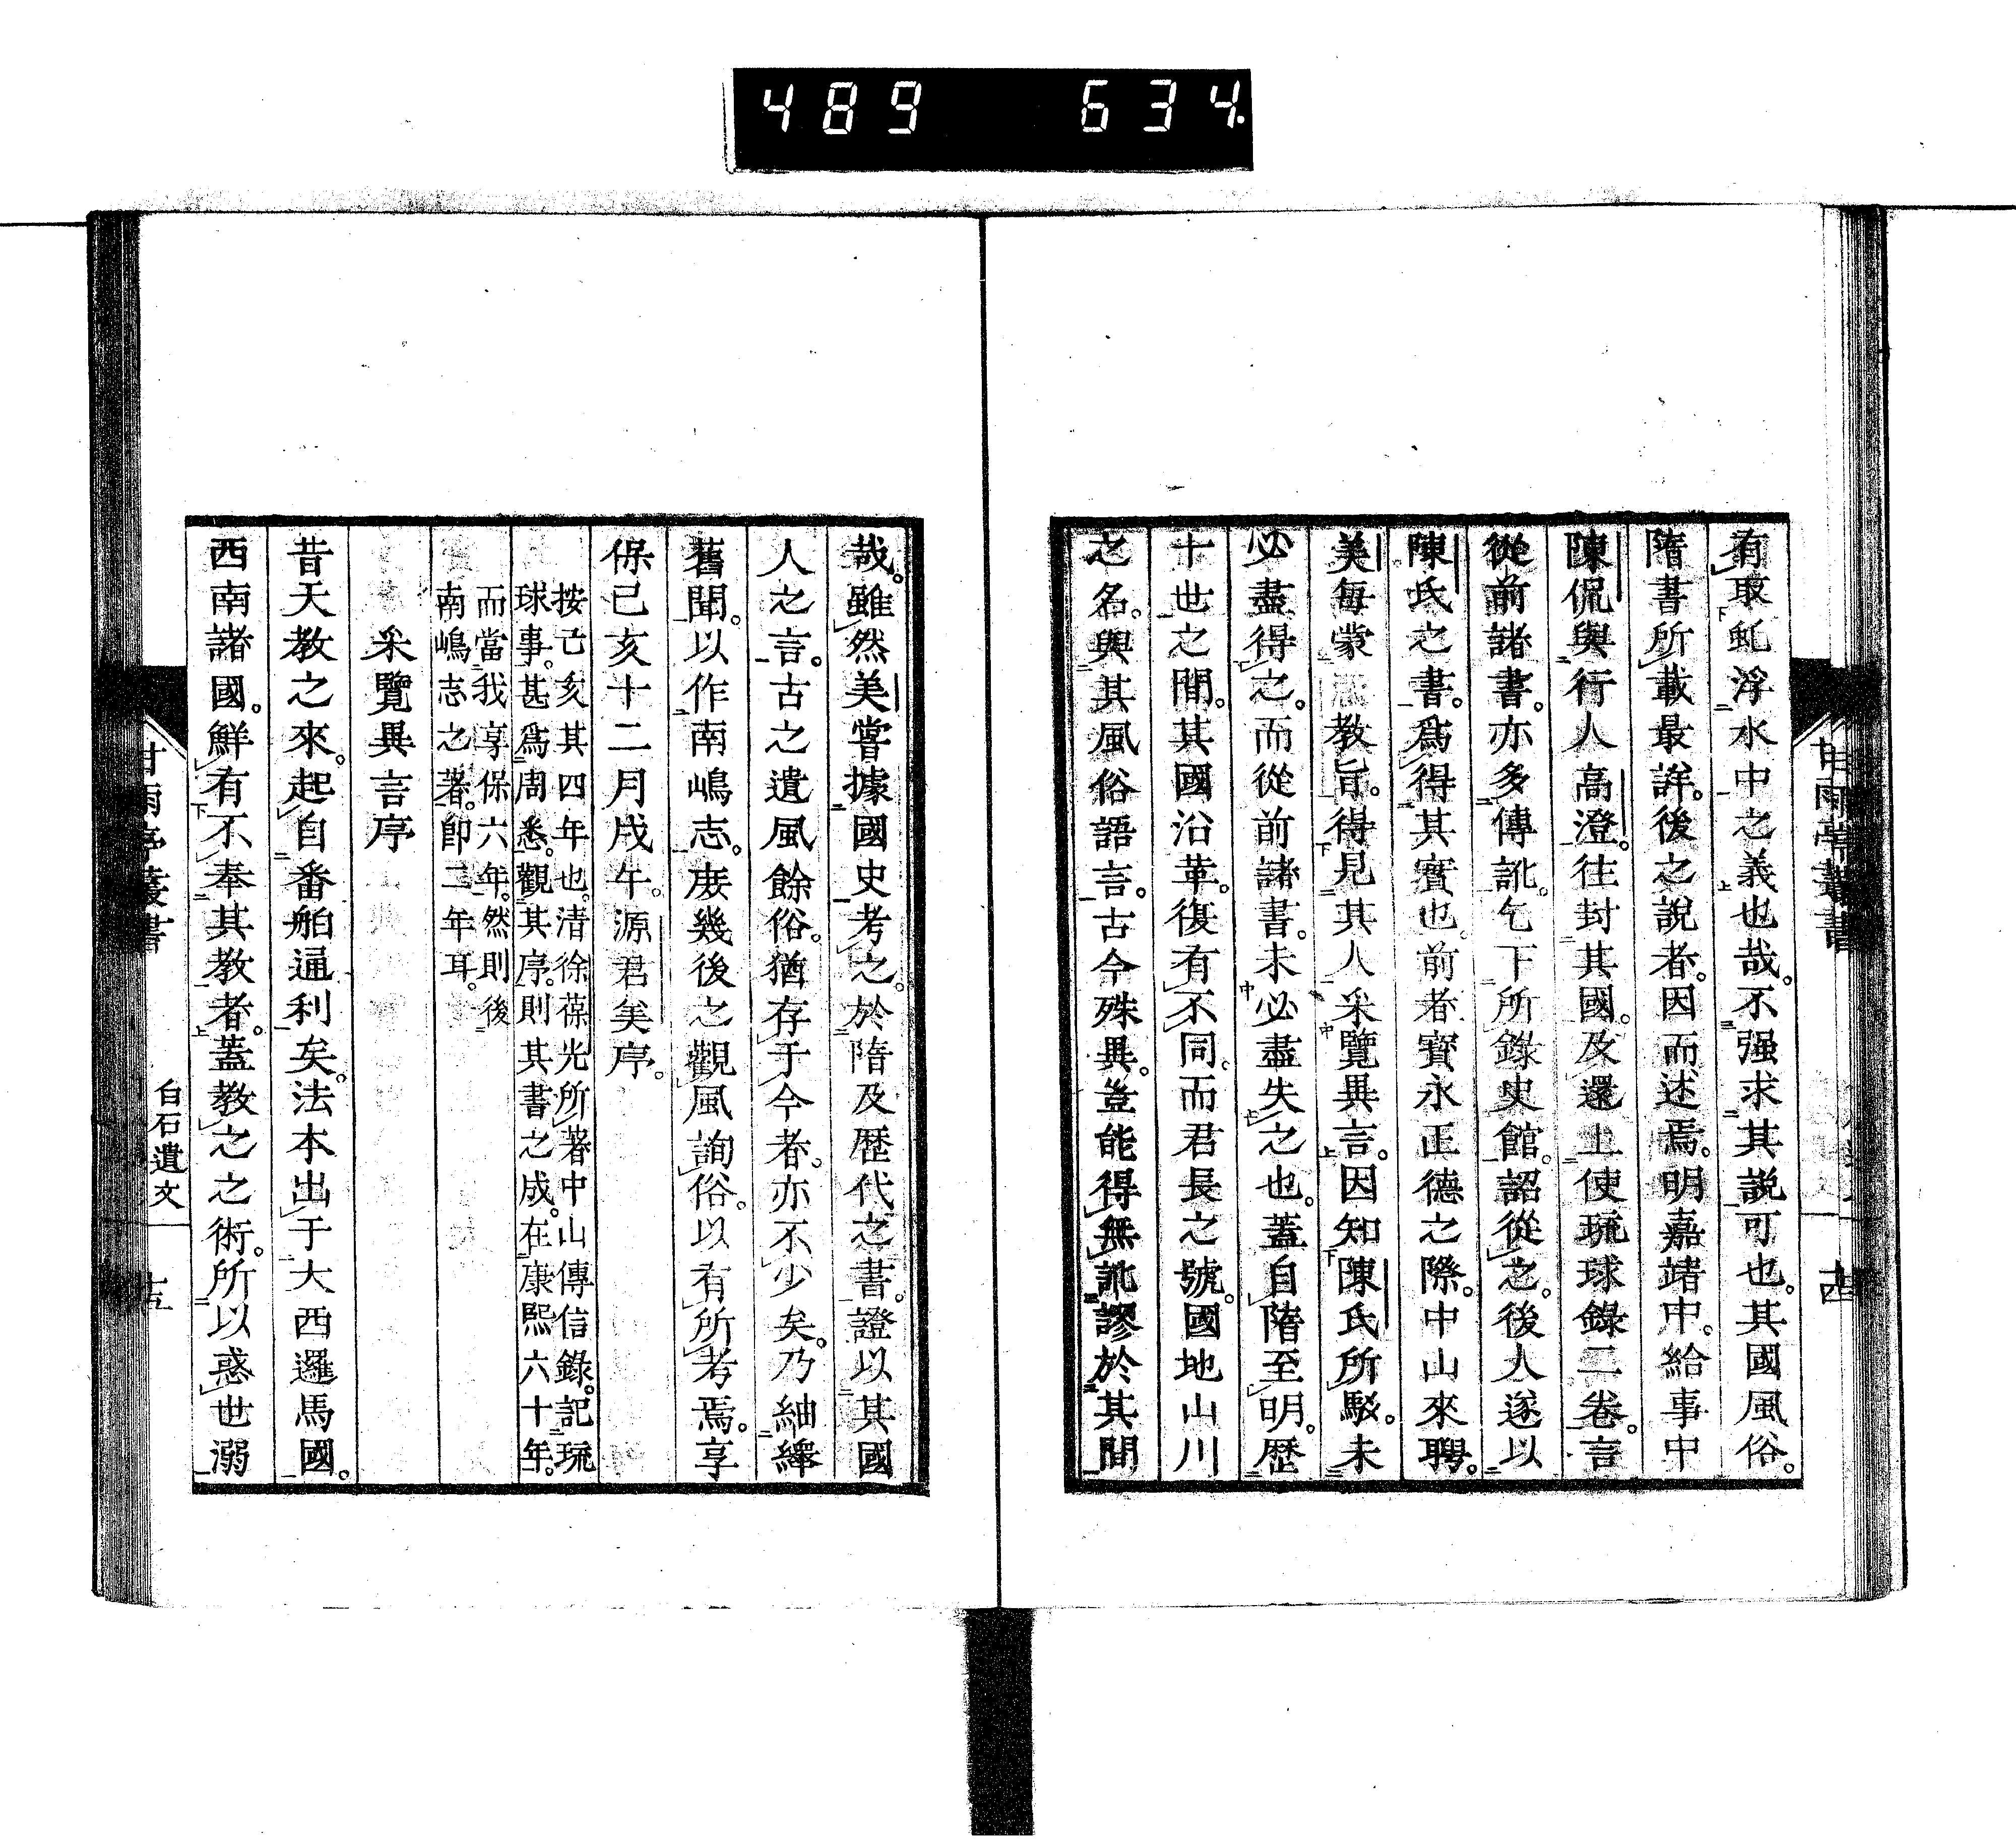 489 634
有取虬浮水中之義也哉。不强求其説可也。其國風俗。
隋書所載最詳。後之說者。因而述焉。明嘉靖中。給事中
陳侃與行人高澄。往封其國。及還上使琉球錄二卷。言
從前諸書。亦多傳訛。乞下所錄史館。詔從之。後人遂以
陳氏之書。爲得其實也。前者寶永正德之際。中山來聘。
美每蒙教旨。得見其人。采覽異言。因知陳氏所駁。未
必盡得之。而從前諸書。未必盡失之也。蓋自隋至明。歷
十世之間。其國沿革。復有不同。而君長之號。國地山川
之名。與其風俗語言。古今殊異。豈能得無訛謬於其間
甘雨亭叢書
十四
哉。雖然美嘗據國史考之。於隋及歷代之書。證以其國
人之言。古之遺風餘俗。猶存于今者。亦不少矣。乃紬繹
舊聞。以作南嶋志。庶幾後之觀風詢俗。以有所考焉。享
保己亥十二月戌午。源君美序。
按己亥其四年也。淸徐葆光所著中山傳信錄。記琉
球事。甚爲周悉。觀其序。則其書之成。在康熙六十年。
而當我享保六年。然則後
南嶋志之著。即二年耳。
采覽異言序
昔天教之來。起自番舶通利矣。法本出于大西邏馬國。
西南諸國。鮮有不奉其教者。蓋教之之術。所以惑世溺
甘雨亭叢書
白石遺文
十五